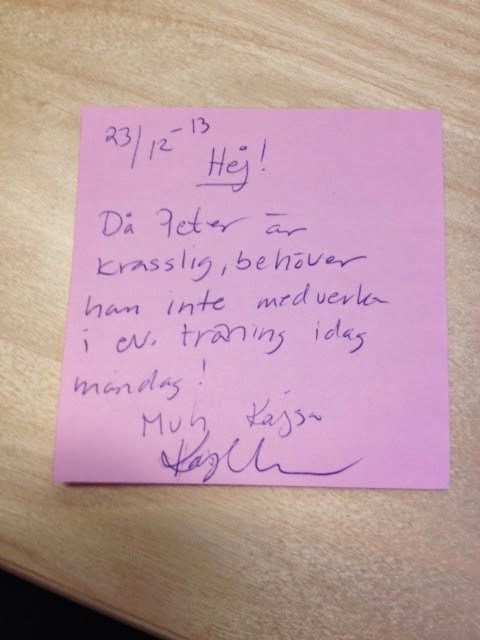 23/12-13
Hej!
Då Peter är
krasslig, behöver
han inte medverka
i ev. träning idag
måndag!
Mvh Kajsa